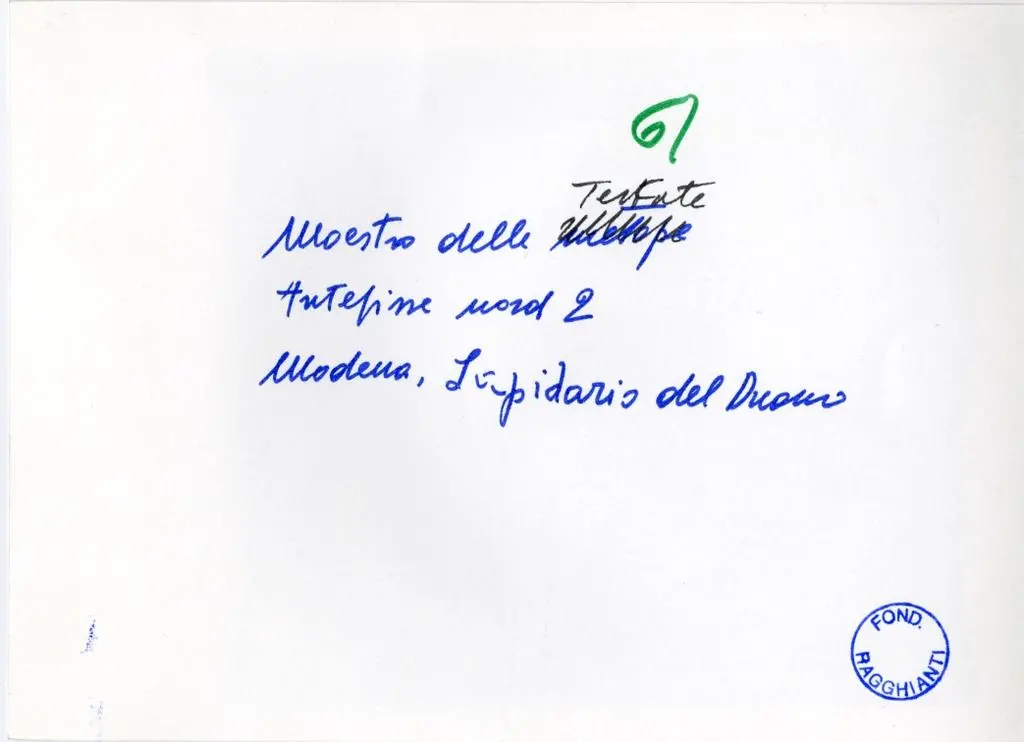 Maestro delle metope
Antefisse nord 2
Modena, Lapidario del Duomo
FOND.
RAGGHIANTI